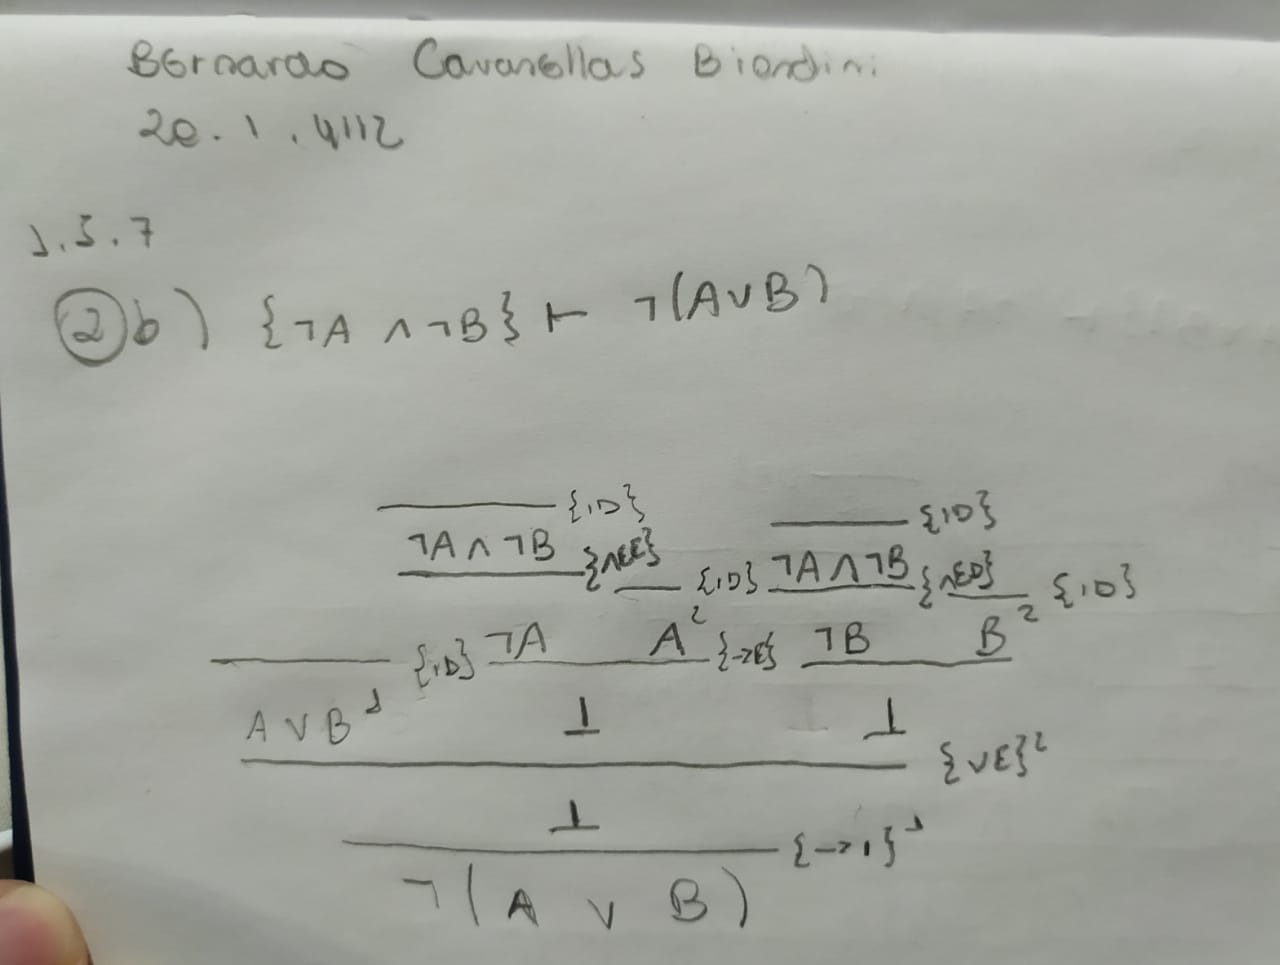 Bernardo Cavanellas Biondini
20.1.4112
1.5.7
② b) {¬A ∧ ¬B} ⊢ ¬(A∨B)
{ID} {ID}
¬A ∧ ¬B {∧EE} {ID} ¬A ∧ ¬B {∧ED} {ID}
{ID} ¬A A² {→E} ¬B B²
A ∨ B¹ ⊥ ⊥
{∨E}²
⊥
{→I}¹
¬(A ∨ B)